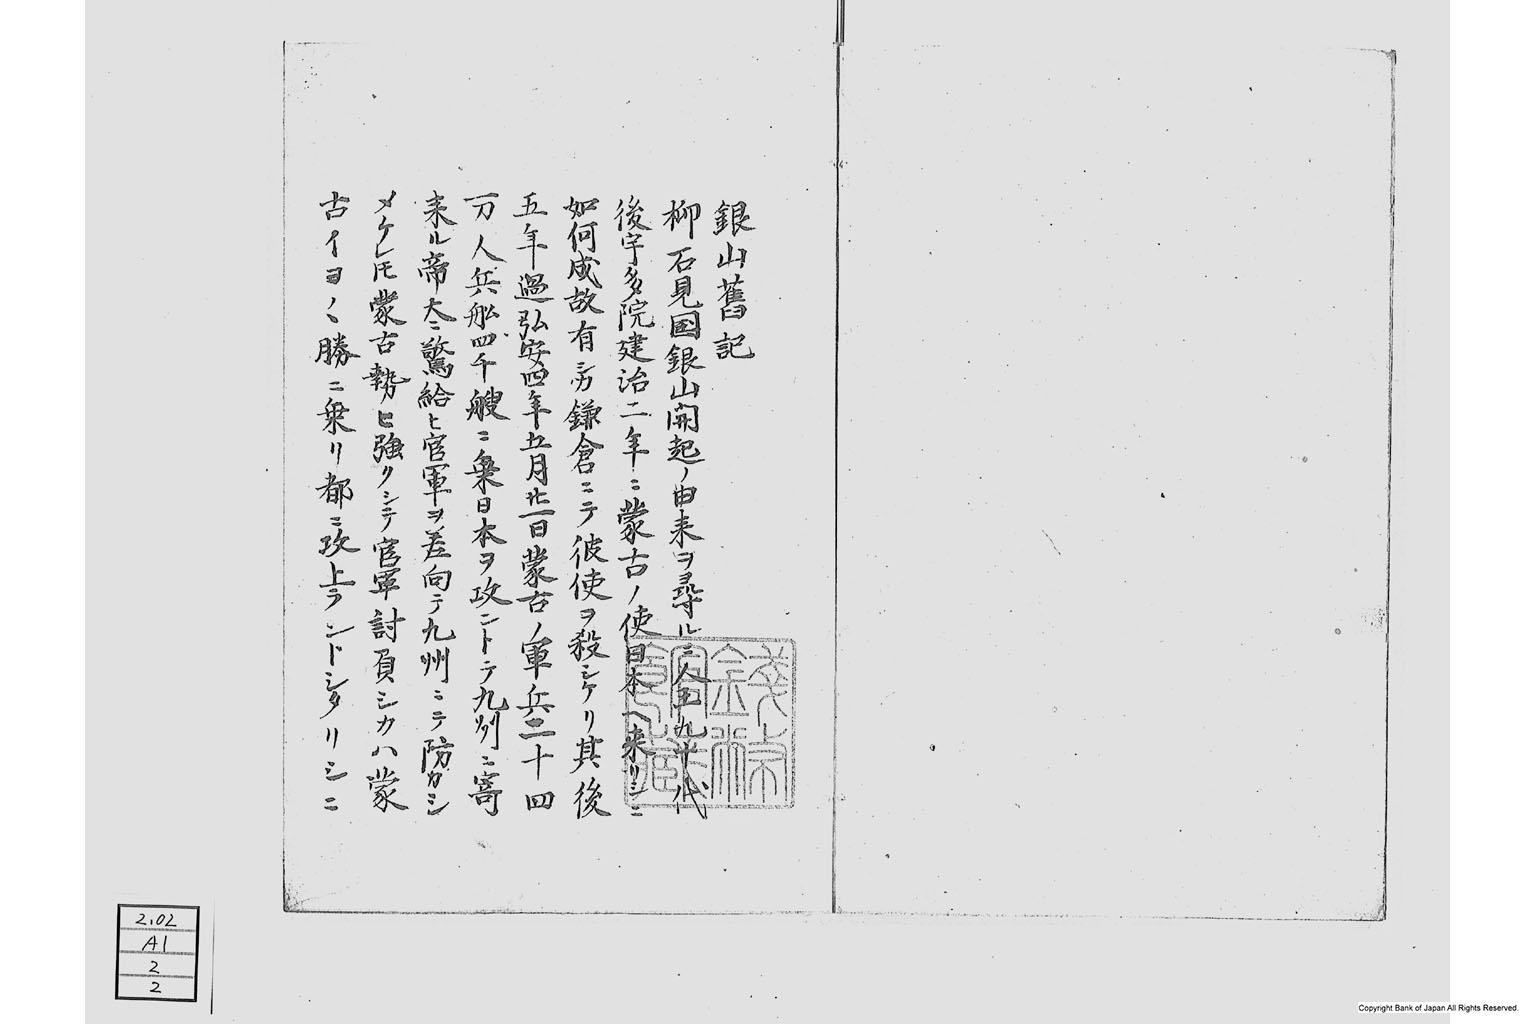 銀山舊記
柳石見國銀山開起ノ由来ヲ尋ルニ人王九十代
後宇多院建治二年ニ蒙古ノ使日本ヘ来リシニ
如何成故有ニヤ鎌倉ニテ彼使ヲ殺シケリ其後
五年過弘安四年五月廿一日蒙古ノ軍兵二十四
万人兵船四千艘ニ乗日本ヲ攻ントテ九州ニ寄
来ル帝大ニ驚給ヒ官軍ヲ差向テ九州ニテ防カシ
メケレ𪜈蒙古勢ヒ強クシテ官軍討負シカハ蒙
古イヨ〱勝ニ乗リ都ニ攻上ラントシタリシニ
2.02
A1
2
2
Copyright Bank of Japan All Rights Reserved.